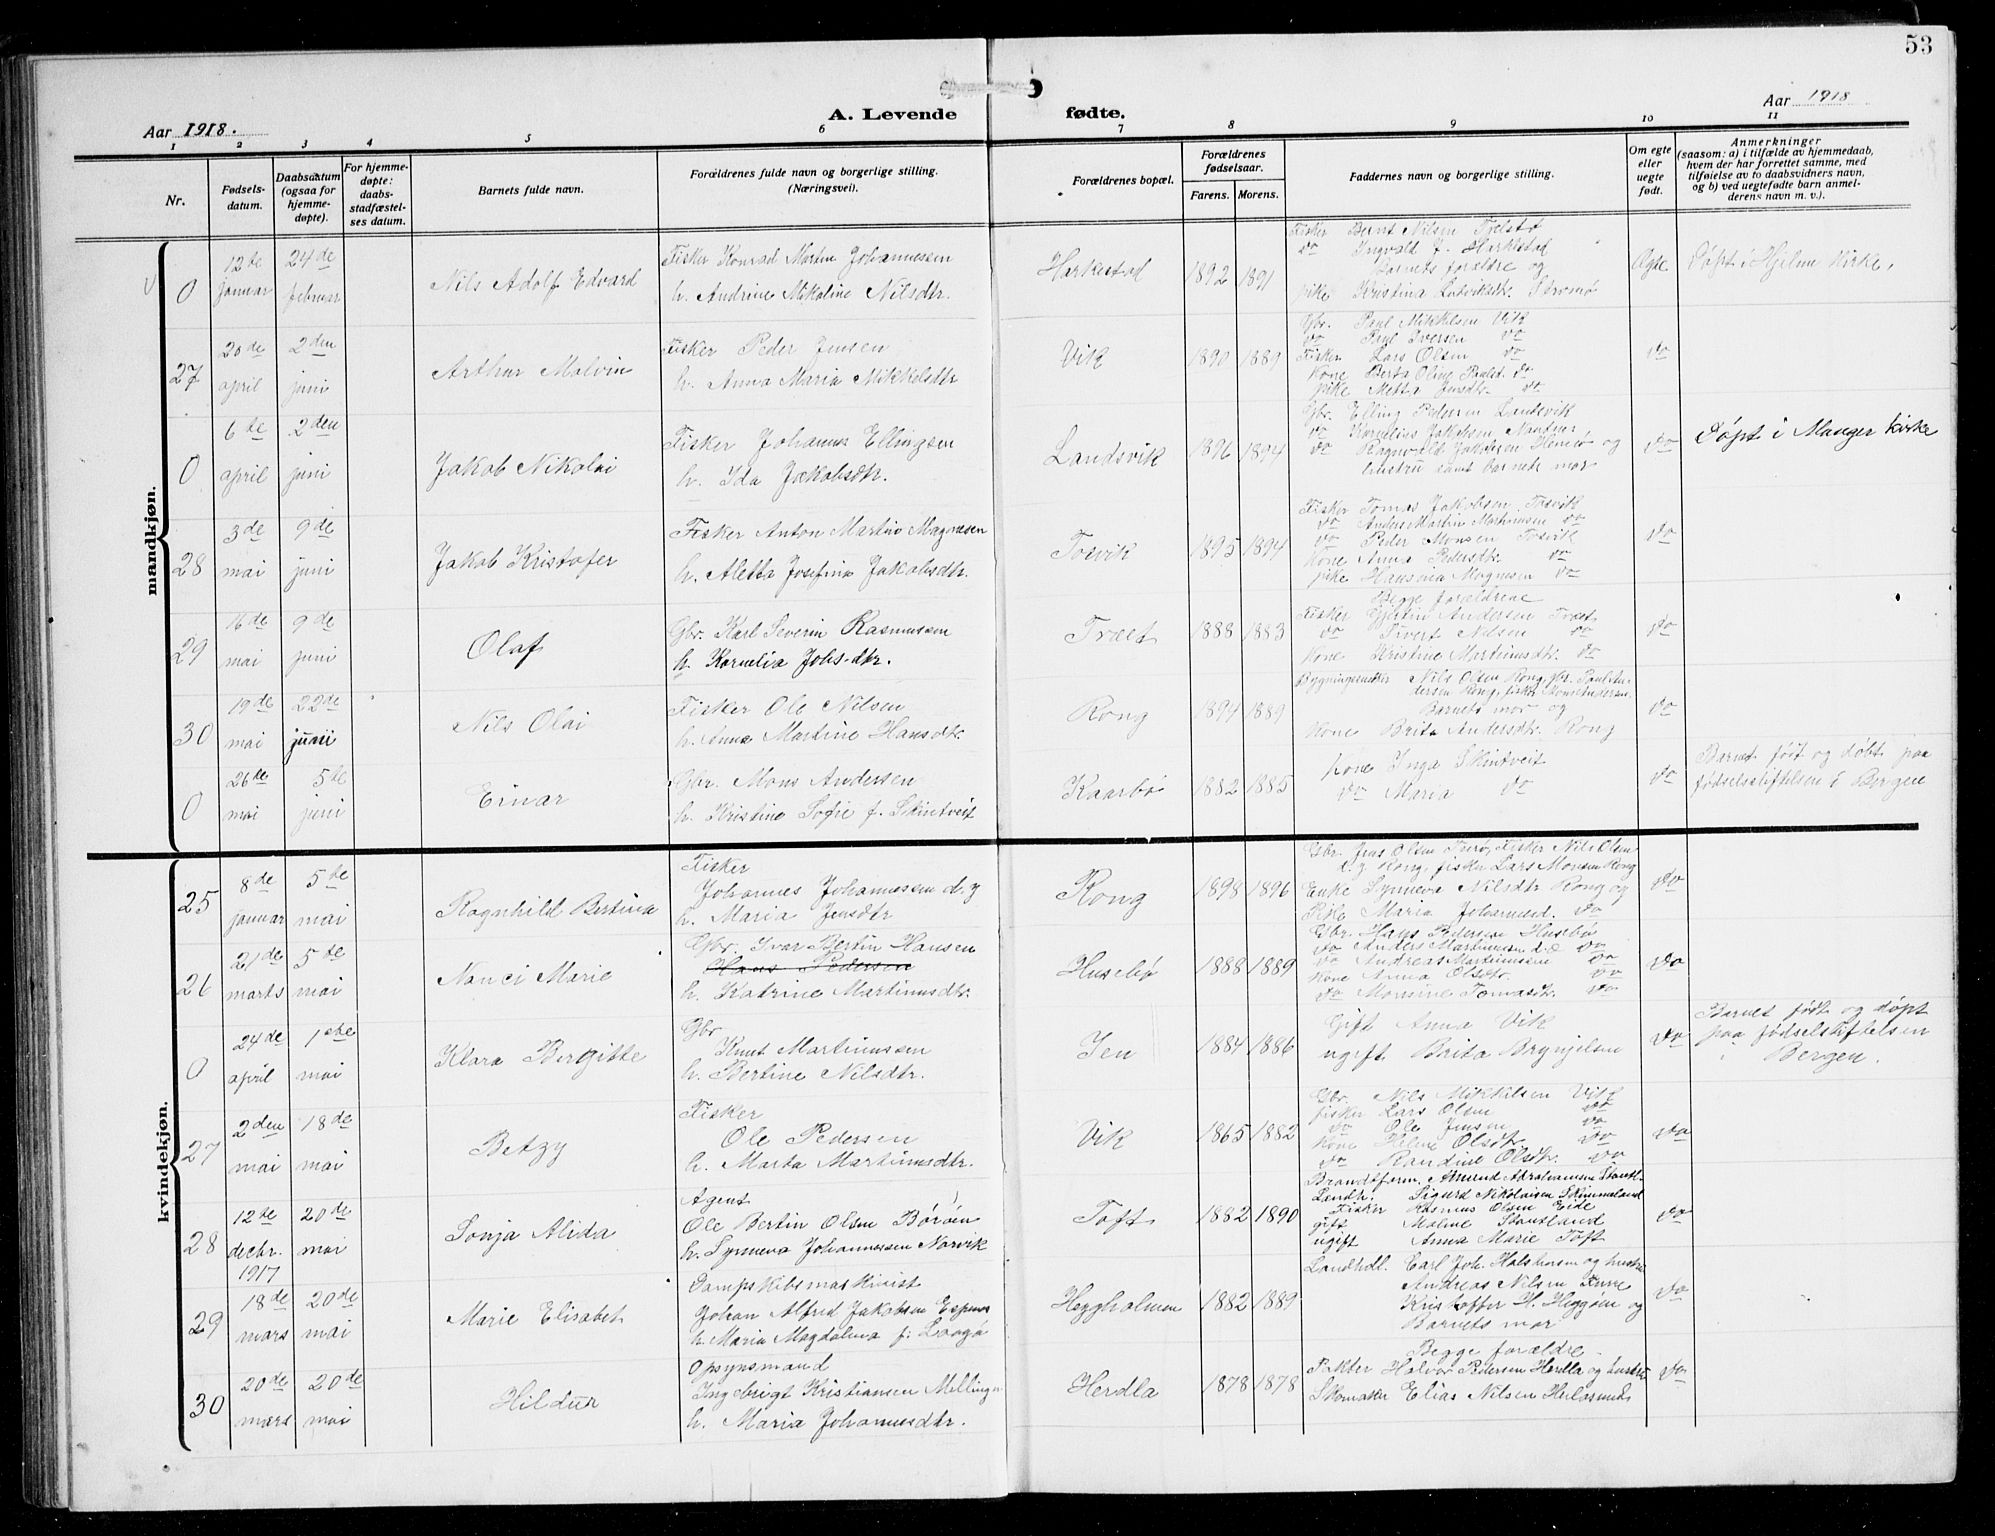 53
Aar 1918.
A. Levende fødte.
Aar 1918
1 2 3 4 5 6 7 8 9 10 11
Nr.
Fødsels-
datum.
Daabsdatum
(ogsaa for
hjemme-
døpte).
For hjemme-
døpte:
daabs-
stadfæstel-
ses datum.
Barnets fulde navn.
Forældrenes fulde navn og borgerlige stilling.
(Næringsvei).
Forældrenes bopæl.
Forældrenes
fødselsaar.
Farens. Morens.
Faddernes navn og borgerlige stilling.
Om egte
eller
uegte
født.
Anmerkninger
(saasom: a) i tilfælde av hjemmedaab,
hvem der har forrettet samme, med
tilføielse av to daabsvidners navn,
og b) ved uegtefødte barn anmel-
derens navn m. v.).
mandkjøn.
0
12te januar
24de februar
Nils Adolf Edvard
Fisker Konrad Martin Johannessen
h. Andrine Mikoline Nilsdtr.
Harkestad
1892 1891
Fisker Bernt Nilsen Tjelstø
do Ingvald J. Harkestad
Barnets forældre og
pike Kristina Ludviksdtr.
Egte
Døpt i Hjelme Kirke.
27
20de april
2den juni
Arthur Malvin
Fisker Peder Jensen
h. Anna Maria Mikkelsdtr
Vik
1890 1889
Gbr. Paul Mikkelsen Vik
do Paul Iversen do
Fisker Lars Olsen do
Kone Berta Oline Paulsd. do
pike Metta Jensdtr. do
do
0
6te april
2den juni
Jakob Nikolai
Fisker Johannes Ellingsen
h. Ida Jakobsdtr.
Landsvik
1896 1894
Gbr. Elling Pedersen Landsvik
do Kornelius Jakobsen
do Ragnvald Jakobsen Hernø og
hustru samt barnets mor
do
Døpt i Manger kirke
28
3de mai
9de juni
Jakob Kristofer
Fisker Anton Martin Magnesen
h. Aletta Josefine Jakobsdtr.
Tosvik
1895 1894
Fisker Tomas Jakobsen Tosvik
do Anders Martin Martinussen do
do Peder Monsen Tosvik
Kone Anna Pedersdtr. do
pike Hansine Magnesen do
do
29
16de mai
9de juni
Olaf
Gbr. Karl Severin Rasmussen
h. Kornelia Johs-dtr.
Træet
1888 1883
Begge forældrene
Fisker Gjertin Andersen Træet
do Sivert Nilsen do
Kone Kristine Martinusdtr. do
do
30
19de mai
22de juni
Nils Olai
Fisker Ole Nilsen
h. Anna Martine Hansdtr.
Rong
1894 1889
Bygningssnekker Nils Olsen Rong, gbr. Paul An-
dersen Rong, fisker Mons Andersen
Barnets mor og
Kone Brita Andersdtr. Rong
do
0
26de mai
5te juni
Einar
Gbr. Mons Andersen
h. Kristine Sofie f. Skintveit
Kaarbø
1882 1885
Kone Inga Skintveit
do Maria do
do
Barnet født og døbt paa
fødselsstiftelsen i Bergen
kvindekjøn.
25
8de januar
5te mai
Ragnhild Bertina
Fisker
Johannes Johannessen d.y
h. Maria Jensdtr
Rong
1898 1896
Gbr. Jens Olsen Turø, Fisker Nils Olsen
d.y. Rong, fisker Lars Monsen Rong
Enke Synneva Nilsdtr Rong og
Pike Maria Johannesd. do
do
26
21de marts
5te mai
Nanci Marie
Gbr. Ivar Bertin Hansen
Hans Pedersen
h. Katrine Martinusdtr.
Husebø
1888 1889
Gbr. Hans Pedersen Husebø
do Anders Martinussen d.e do
do Andreas Martinussen do
Kone Anna Olsdtr. do
do Monsine Tomasdtr. do
do
0
24de april
1ste mai
Klara Bergitte
Gbr
Knut Martinussen
h. Bertine Nilsdtr.
Jen
1884 1886
Gift Anna Vik
ugift Brita Brynjelsen
do
Barnet født og døpt
paa fødselstiftelsen
i Bergen.
27
2den mai
18de mai
Betzy
Fisker
Ole Pedersen
h. Marta Martinusdtr.
Vik
1865 1882
Gbr. Nils Mikkelsen Vik
fisker Lars Olsen do
do Ole Jensen do
Kone Helene Olsdtr. do
do Randine Olsdtr. do
do
28
12te decbr. 1917
20de mai
Sonja Alida
Agent
Ole Bertin Olsen Børøen
h. Synneva Johannessen Narvik
Toft
1882 1890
Brandform. Amund Abrahamsen
Landh. Sigurd Nikolaisen Skimmeland
Fisker Rasmus Olsen Eide
gift Maline Stantland
ugift Anna Marie Toft
do
29
18de mars
20de mai
Marie Elisabet
Dampskibsmaskinist
Johan Alfred Jakobsen
h. Maria Magdalena f.
Heggholmen
1882 1889
Landhdl. Carl Joh. Halshorsen og hustru
Andreas Nilsen
Kristoffer H. Heggøen og
Barnets mor
do
30
20de mars
20de mai
Hildur
Opsynsmand
Ingebrigt Kristiansen Mellingen
h. Maria Johannesdtr.
Herdla
1878 1878
Begge forældre
Pakter Halvor Pedersen Herdla og hustru
Skomaker Elias Nilsen
do